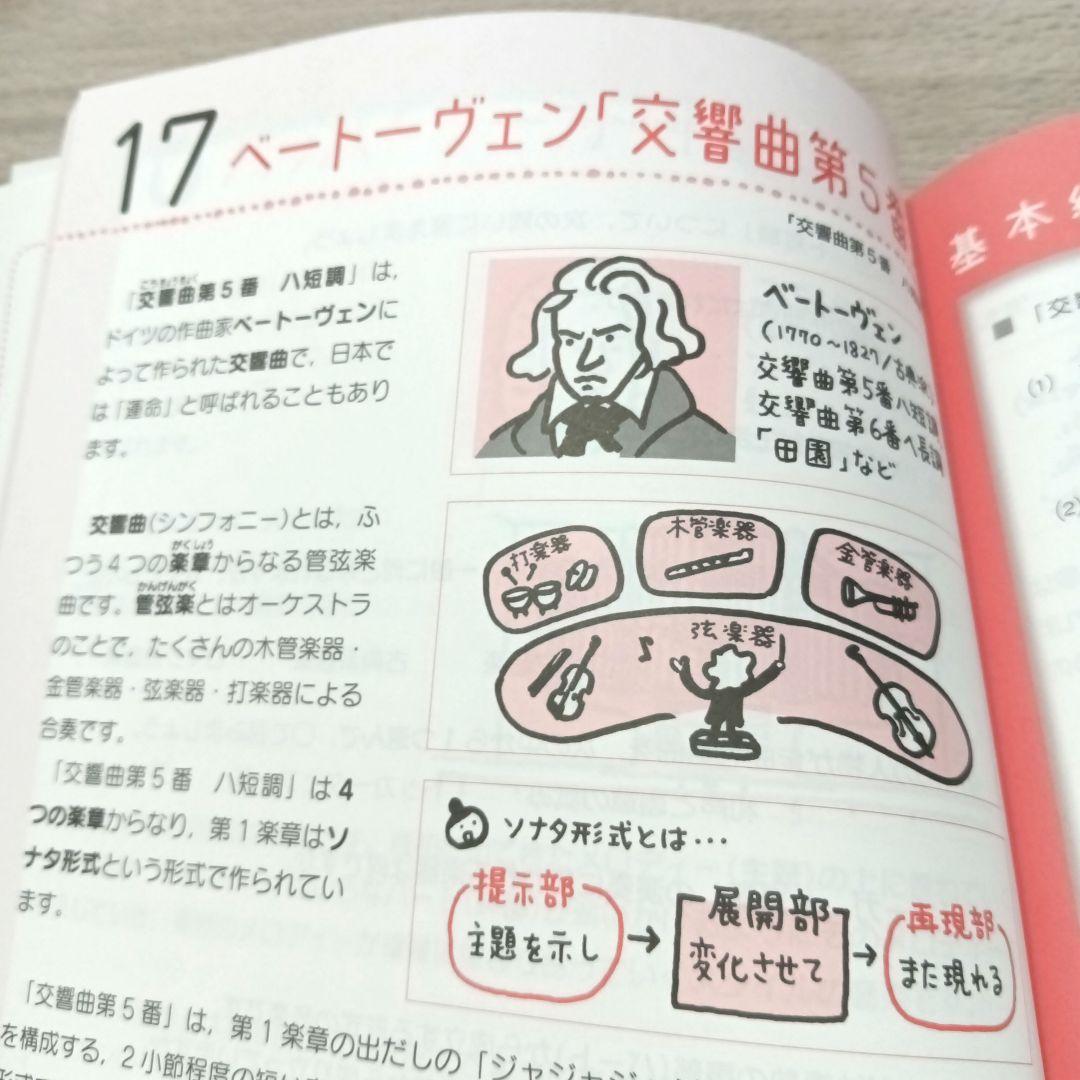 17 ベートーヴェン「交響曲第5番
「交響曲第5番 ハ
こうきょうきょく
「交響曲第5番 ハ短調」は,
ドイツの作曲家ベートーヴェンに
よって作られた交響曲で,日本で
は「運命」と呼ばれることもあり
ます。
ベートーヴェン
(1770〜1827/古典派)
交響曲第5番ハ短調
交響曲第6番ヘ長調
「田園」など
交響曲(シンフォニー)とは,ふ
がくしょう
つう4つの楽章からなる管弦楽
かんげんがく
曲です。管弦楽とはオーケストラ
のことで,たくさんの木管楽器・
金管楽器・弦楽器・打楽器による
合奏です。
打楽器
木管楽器
金管楽器
弦楽器
「交響曲第5番 ハ短調」は4
つの楽章からなり,第1楽章はソ
ナタ形式という形式で作られてい
ます。
ソナタ形式とは…
提示部
主題を示し
→
展開部
変化させて
→
再現部
また現れる
「交響曲第5番」は,第1楽章の出だしの「ジャジャジ
を構成する,2小節程度の短い
基本
■「交
(1)
(2)